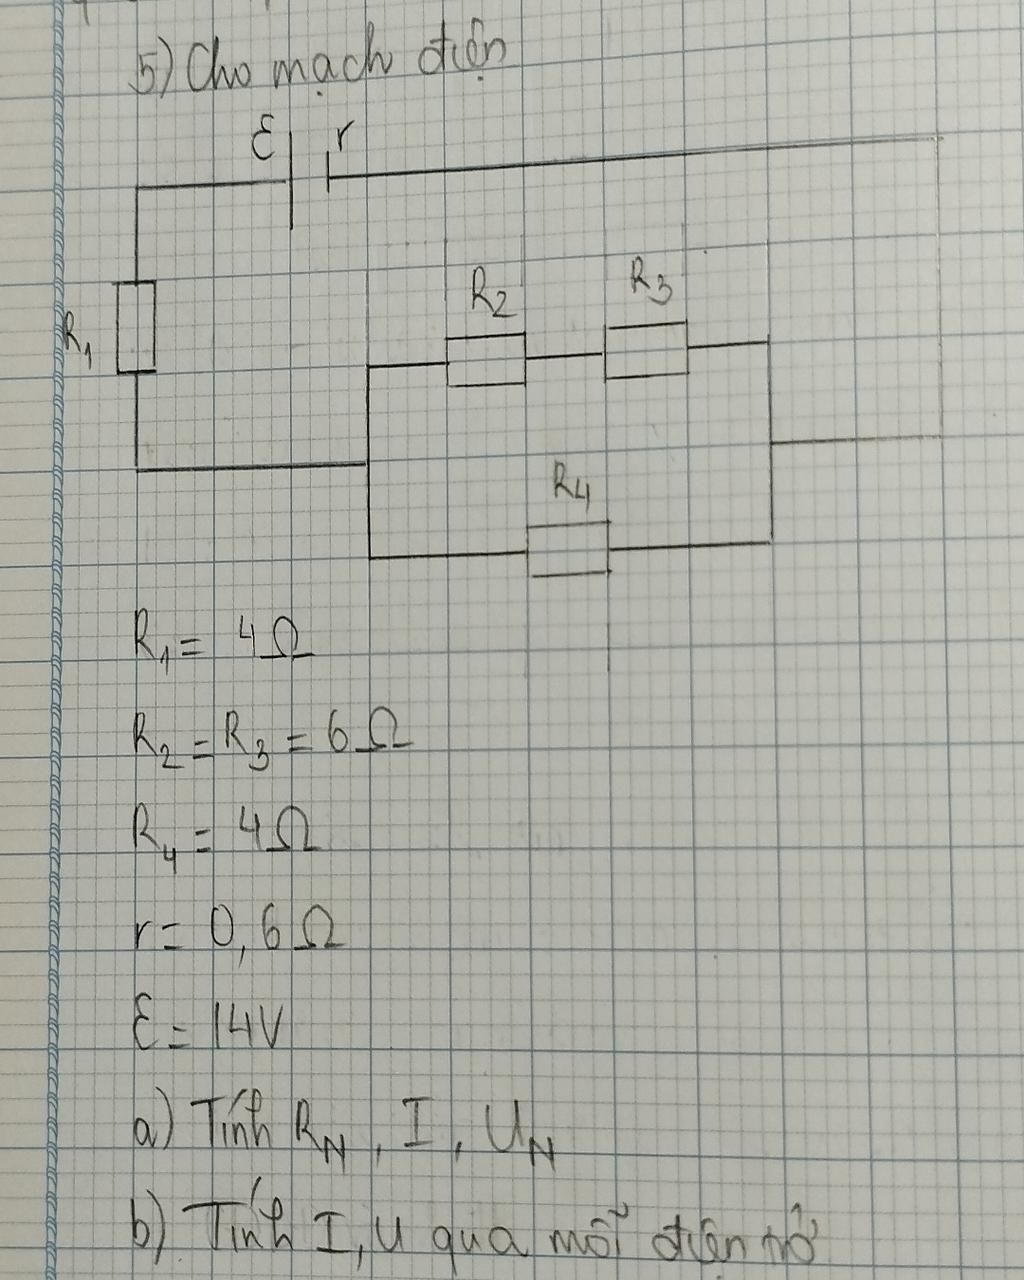 5) Cho mạch điện
ε r
R2 R3
R1
R4
R1 = 4Ω
R2 = R3 = 6Ω
R4 = 4Ω
r = 0,6Ω
ε = 14V
a) Tính RN, I, UN
b) Tính I, U qua mỗi điện trở